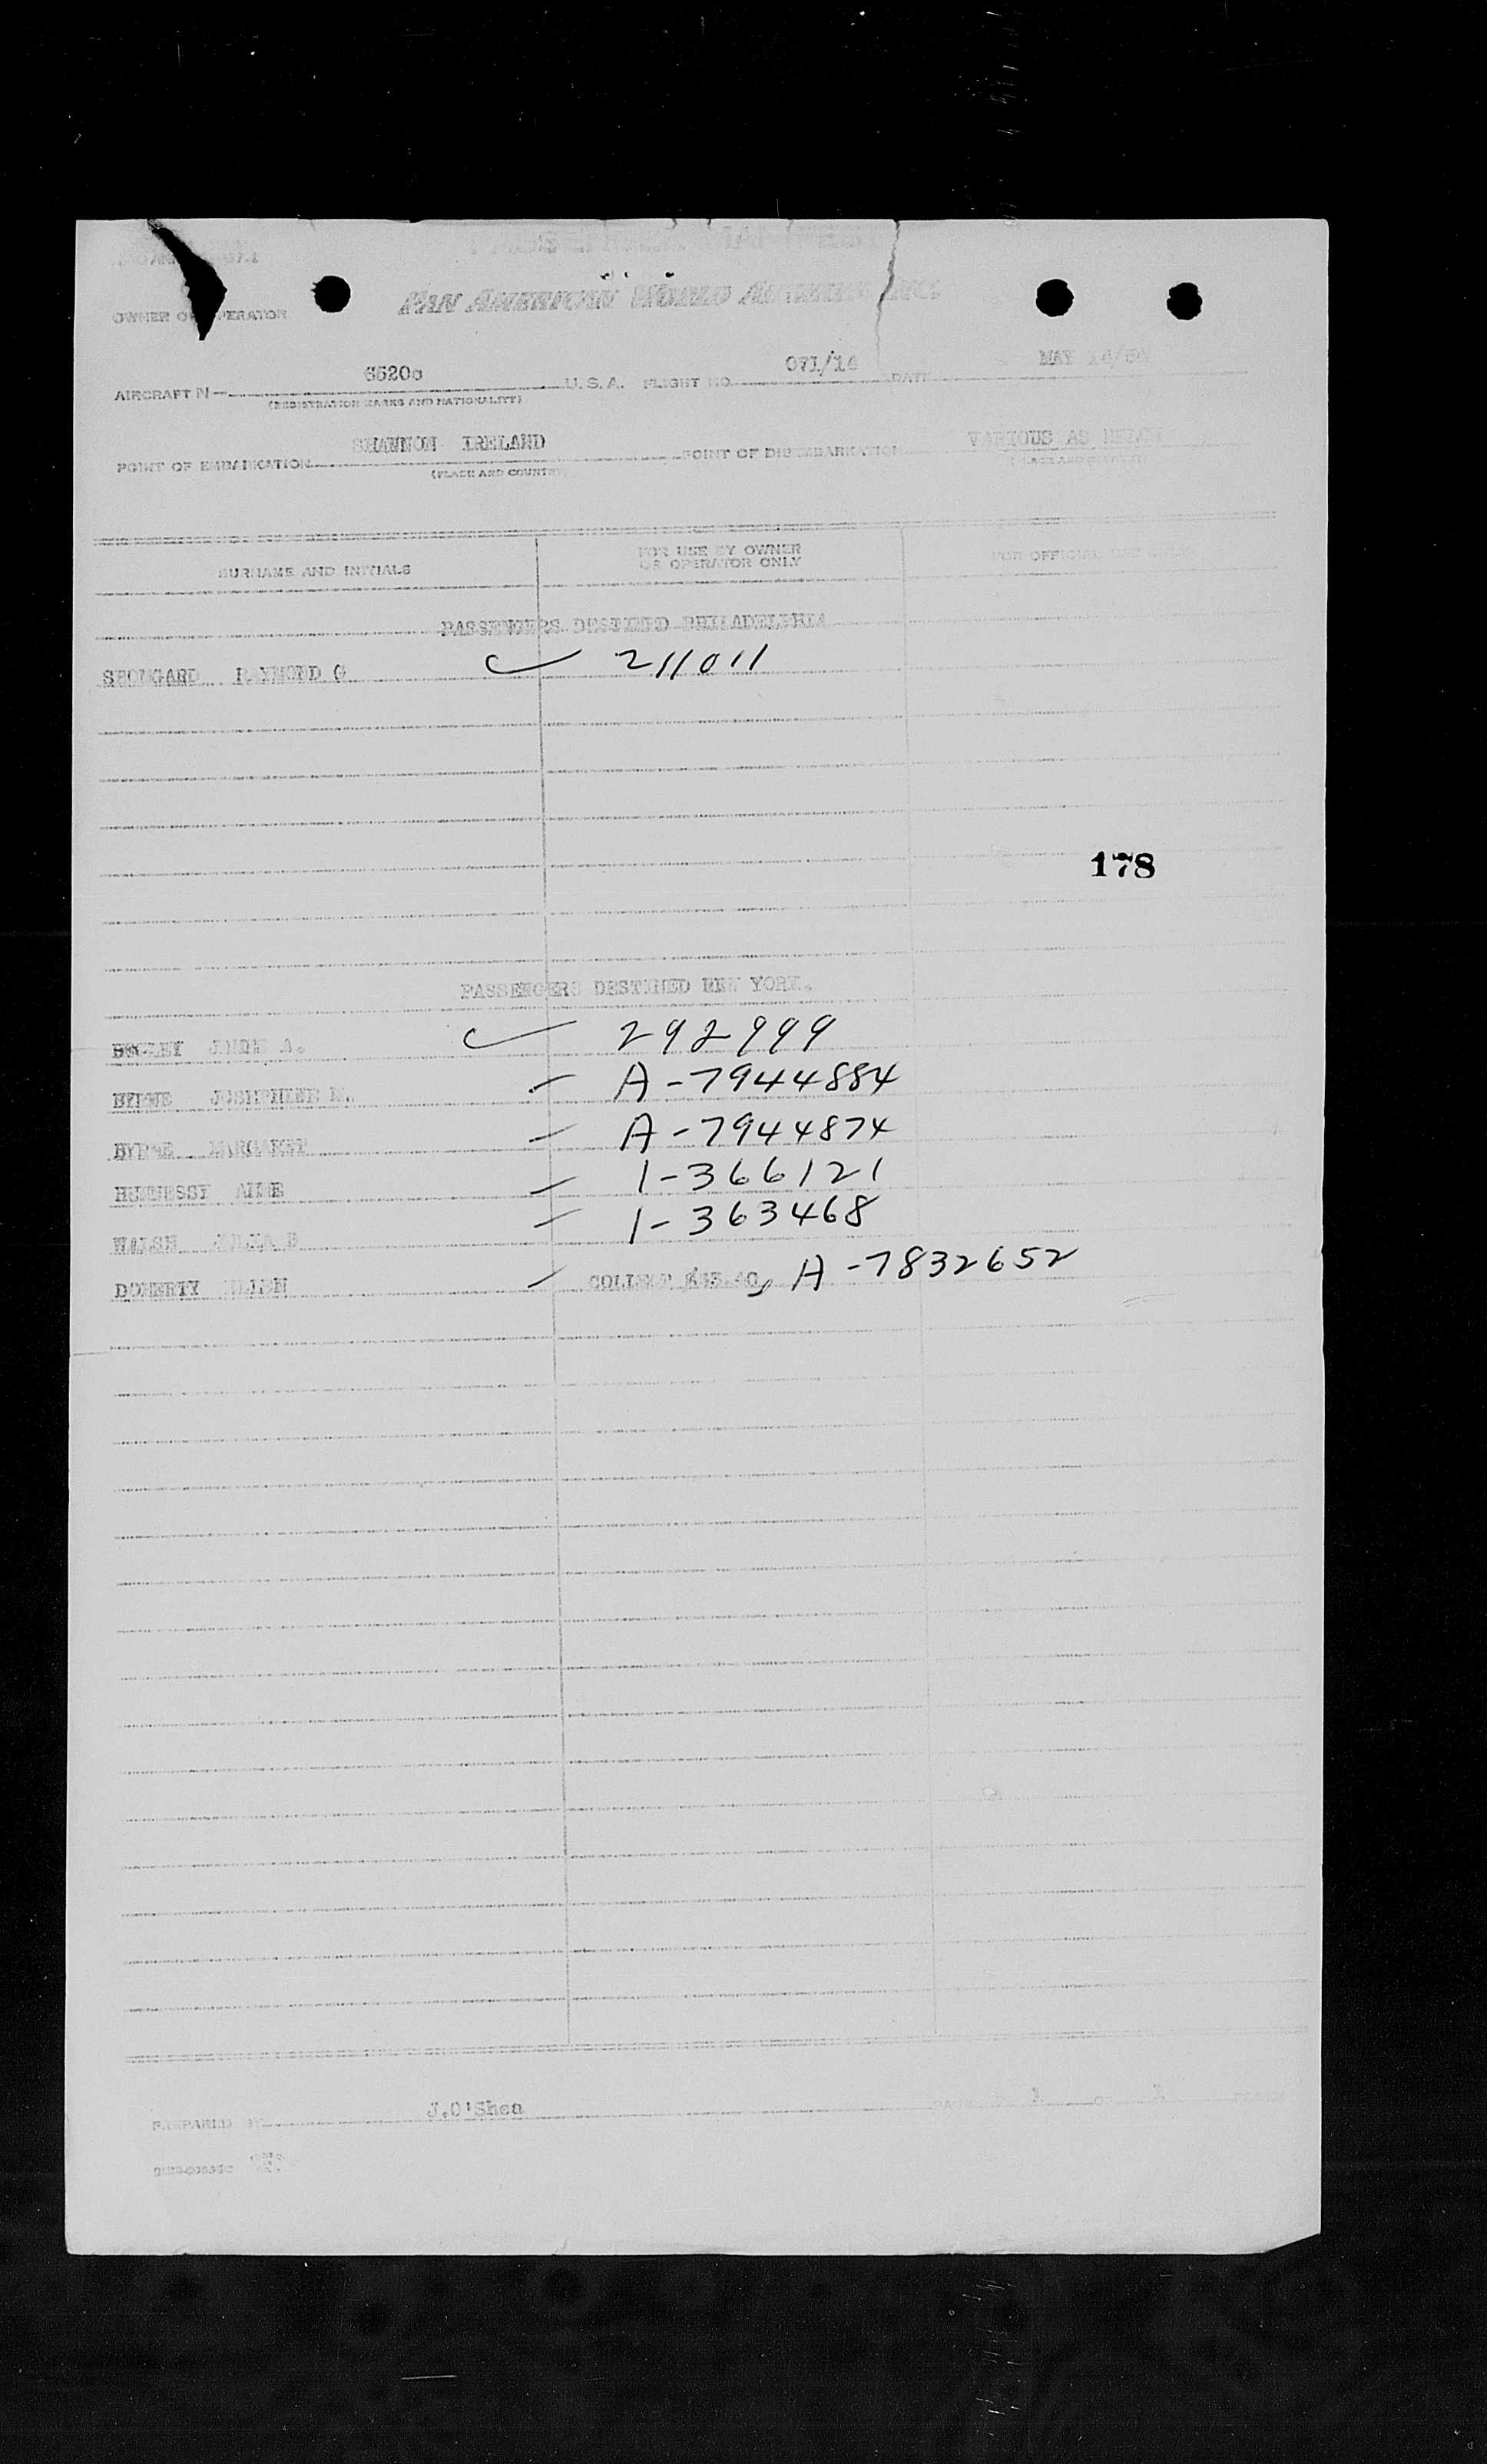 OWNER OR OPERATOR PAN AMERICAN WORLD AIRWAYS INC.
AIRCRAFT N- 6520c U. S. A. FLIGHT NO. 071/14 DATE MAY 14/54
(REGISTRATION MARKS AND NATIONALITY)
POINT OF EMBARKATION SHANNON IRELAND POINT OF DISEMBARKATION VARIOUS AS BELOW
(PLACE AND COUNTRY) (PLACE AND COUNTRY)
SURNAME AND INITIALS FOR USE BY OWNER OR OPERATOR ONLY FOR OFFICIAL USE ONLY
PASSENGERS DESTINED PHILADELPHIA
RAYMOND G 211011
178
PASSENGERS DESTINED NEW YORK.
BEGLEY A. 292999
BYRNE JOSEPHINE M. A-7944884
BYRNE MARGARET A-7944874
HENNESSY 1-366121
WALSH JULIA 1-363468
DOHERTY COLLECT A-7832652
PREPARED BY J.O'Shea PAGE OF